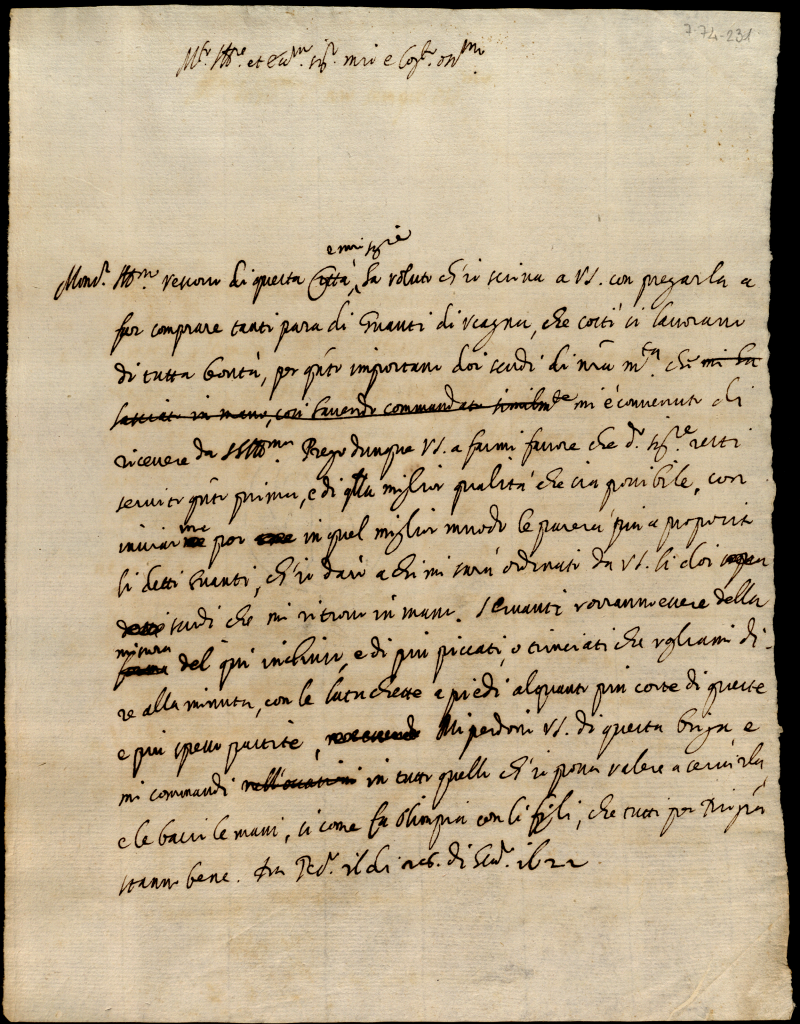 7-74-231
Mons.r Ill.mo vescovo di questa Città, e mio sig.re ha voluto ch'io scriva a VS. con pregarla a
far comprare tanti para di Guanti di vcagna, che costì si lavorano
di tutta bontà, per q.nto importano doi scudi di n.ra m.ta che mi ha
lasciato in mano, così havendo commandato simil.mte mi è convenuto di
ricevere da SS. Ill.ma Prego dunque VS. a farmi favore che d.o sig.re resti
servito q.nto prima, e di q.lla miglior qualità che sia possibile, con
inviarme per in quel miglior muodo le parerà più a proposito
li detti Guanti, ch'io darò a chi mi sarà ordinato da VS. li doi
scudi che mi ritrovo in mano. I Guanti vorranno essere della
misura del qui inchiuso, e di più piccati, o trinciati che vgliamo di-
re alla minuta, con le a piedi alquanto più corte di queste
e più spesso partite, Mi perdoni VS. di questa briga, e
mi commandi nell'occasioni in tutto quello ch'io possa valere a servirla,
e le bacio le mani, sì come fa Olimpia con li figli, che tutti per Dio gra
stanno bene. Da il di di 1622